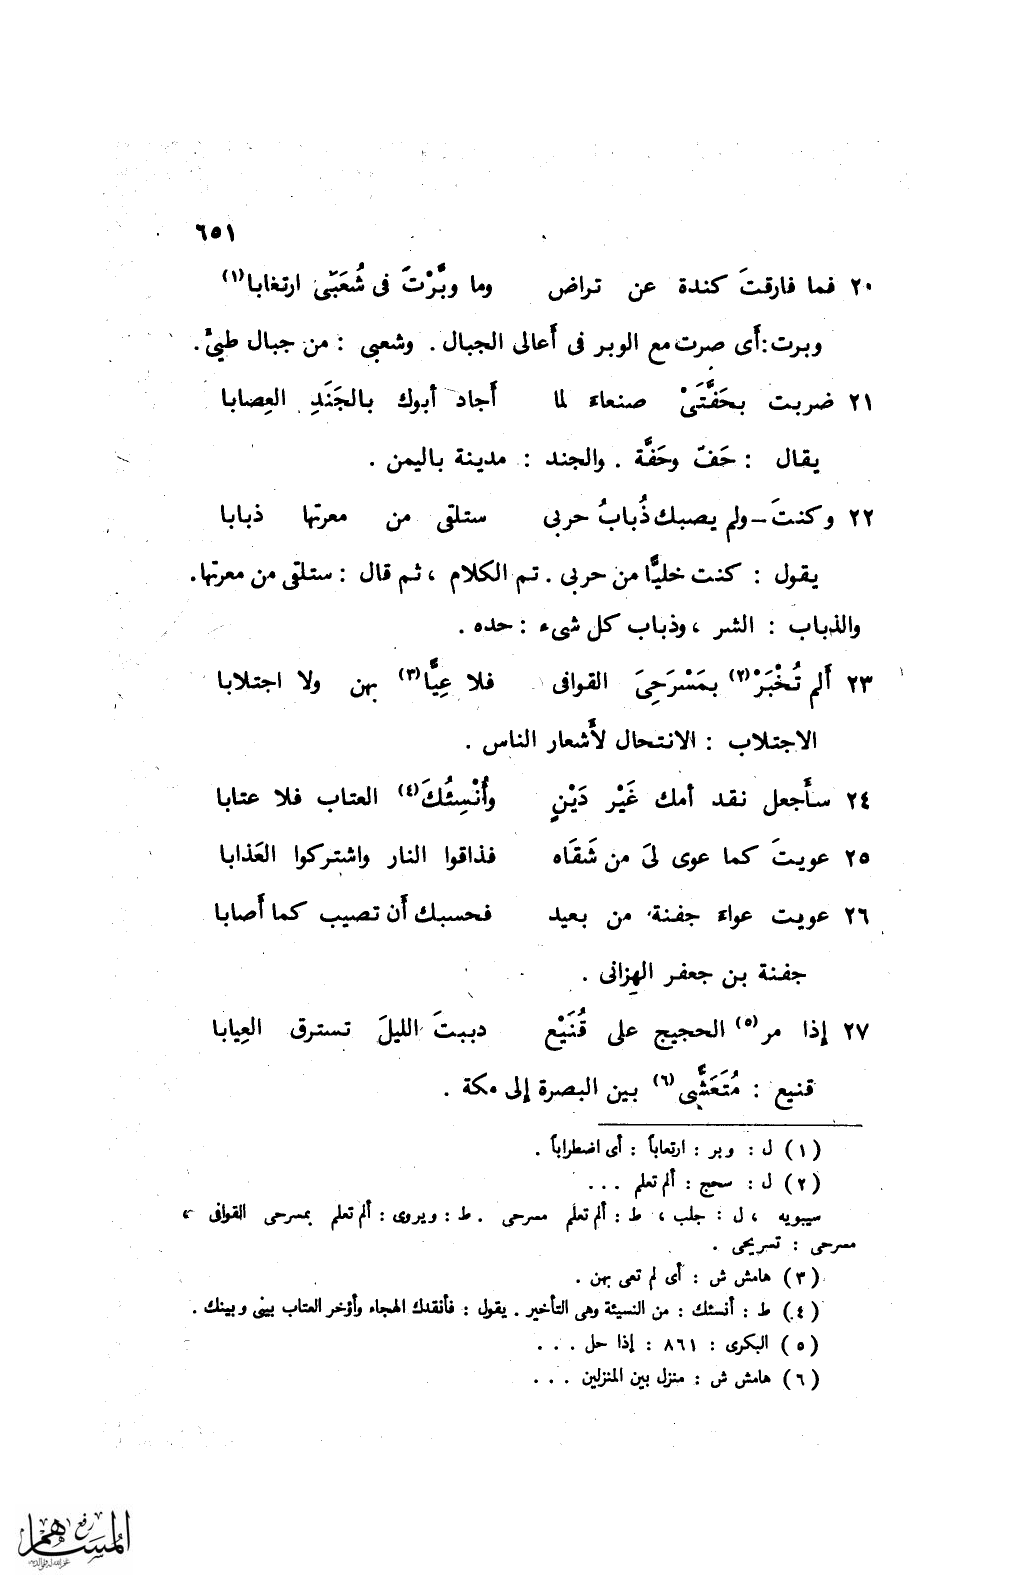 ٦٥١
٢٠ فما فارقتَ كندة عن تراض وما وبَّرْتَ فى شُعَبّى ارتغابا(١)
وبرت:أى صرت مع الوبر فى أعالى الجبال . وشعبى : من جبال طيئ .
٢١ ضربت بحَفَّتَىْ صنعاء لما أجاد أبوك بالجَنَدِ العِصابا
يقال : حَفّ وحَفَّة . والجند : مدينة باليمن .
٢٢ وكنتَ – ولم يصبك ذُبابُ حربى ستلقى من معرتها ذبابا
يقول : كنت خليًّا من حربى . تم الكلام ، ثم قال : ستلقى من معرتها .
والذباب : الشر ، وذباب كل شىء : حده .
٢٣ ألم تُخْبَرْ(٢) بمَسْرَحِىَ القوافى فلا عِيًّا(٣) بهن ولا اجتلابا
الاجتلاب : الانتحال لأشعار الناس .
٢٤ سأجعل نقد أمك غَيْر دَيْنٍ وأُنْسِئُكَ(٤) العتاب فلا عتابا
٢٥ عويتَ كما عوى لىَ من شَقَاه فذاقوا النار واشتركوا العَذابا
٢٦ عويت عواء جفنة من بعيد فحسبك أن تصيب كما أصابا
جفنة بن جعفر الهِزانى .
٢٧ إذا مر(٥) الحجيج على قُنَيْع دببتَ الليلَ تسترق العِيابا
قنيع : مُتَعَشَّى(٦) بين البصرة إلى مكة .
(١) ل : وبر : ارتعاباً : أى اضطراباً .
(٢) ل : سحج : ألم تعلم ...
سيبويه ، ل : جلب ، ط : ألم تعلم مسرحى . ط : ويروى : ألم تعلم بمسرحى القوافى ،
مسرحى : تسريحى .
(٣) هامش ش : أى لم تعى بهن .
(٤) ط : أنسئك : من النسيئة وهى التأخير . يقول : فأنقدك الهجاء وأؤخر العتاب بينى وبينك .
(٥) البكرى : ٨٦١ : إذا حل ...
(٦) هامش ش : منزل بين المنزلين ...
رفع
المساهم